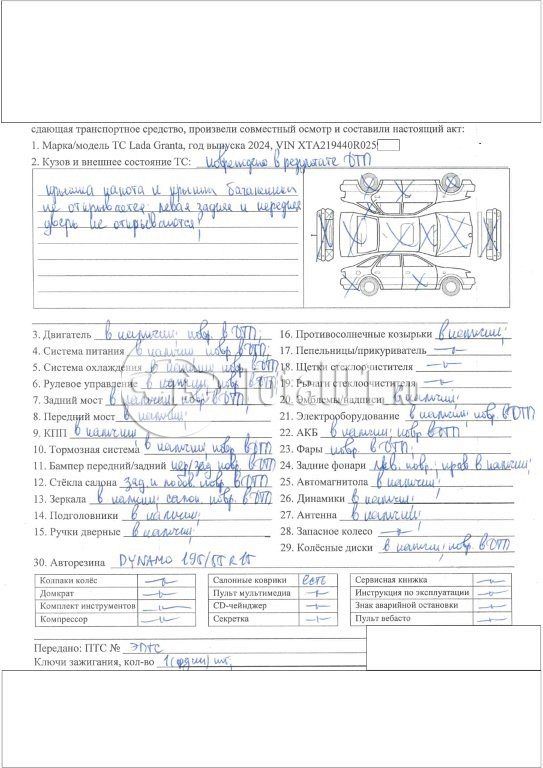 сдающая транспортное средство, произвели совместный осмотр и составили настоящий акт:
1. Марка/модель ТС Lada Granta, год выпуска 2024, VIN XTA219440R025
2. Кузов и внешнее состояние ТС: повреждено в результате ДТП
крышка капота и крышка багажника
не открывается. левая задняя и передняя
дверь не открываются;
3. Двигатель в наличии; повр. в ДТП;
4. Система питания в наличии повр в ДТП
5. Система охлаждения в наличии повр. в ДТП
6. Рулевое управление в наличии, повр. в ДТП
7. Задний мост в наличии повр. в ДТП
8. Передний мост в наличии;
9. КПП в наличии
10. Тормозная система в наличии; повр. в ДТП
11. Бампер передний/задний пер/зад повр в ДТП
12. Стёкла салона зад. и лобов. повр. в ДТП
13. Зеркала в наличии; салон. повр. в ДТП
14. Подголовники в наличии;
15. Ручки дверные в наличии;
16. Противосолнечные козырьки в наличии;
17. Пепельницы/прикуриватель
18. Щетки стеклоочистителя
19. Рычаги стеклоочистителя
20. Эмблемы/надписи в наличии;
21. Электрооборудование в наличии; повр. в ДТП
22. АКБ в наличии; повр в ДТП
23. Фары повр. в ДТП;
24. Задние фонари лев. повр.; прав в наличии;
25. Автомагнитола в наличии;
26. Динамики в наличии;
27. Антенна в наличии;
28. Запасное колесо
29. Колёсные диски в наличии; повр. в ДТП
30. Авторезина DYNAMO 195/55 R15
Колпаки колёс
Домкрат
Комплект инструментов
Компрессор
Салонные коврики есть
Пульт мультимедиа
CD-чейнджер
Секретка
Сервисная книжка
Инструкция по эксплуатации
Знак аварийной остановки
Пульт вебасто
Передано: ПТС № ЭПТС
Ключи зажигания, кол-во 1 (один) шт,